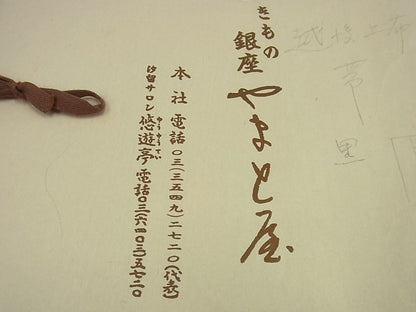 越後上布
帯 黒
きもの
銀座 やまと屋
本社 電話〇三(三五四九)二七二〇(代表)
汐留サロン 悠遊亭 電話〇三(六四〇三)五七二〇
ゆうゆうてい